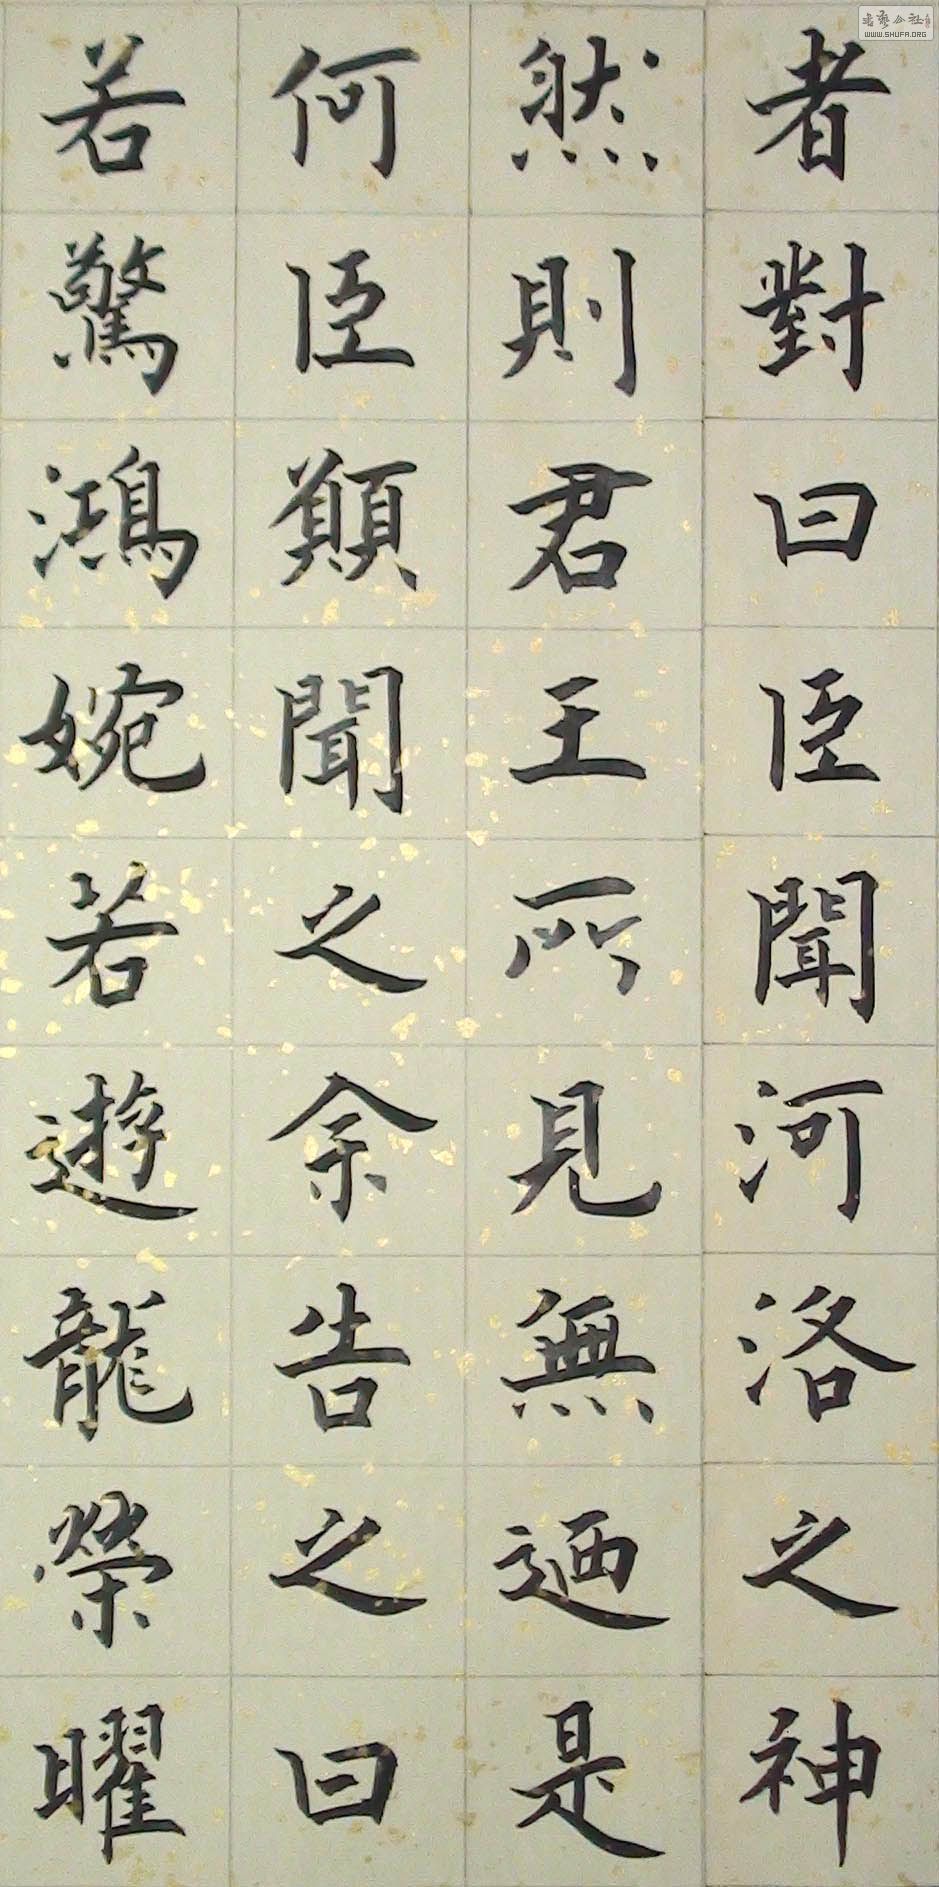 者對曰臣聞河洛之神
然則君王所見無迺是
何臣願聞之余告之曰
若驚鴻婉若遊龍榮曜
WWW.SHUFA.ORG